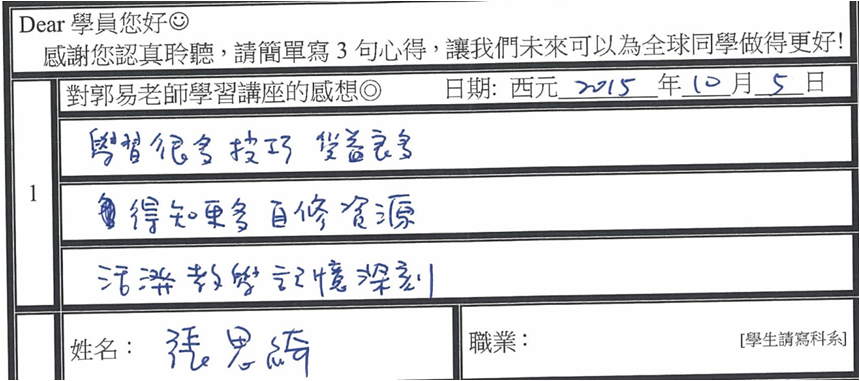 Dear 學員您好☺
感謝您認真聆聽，請簡單寫 3 句心得，讓我們未來可以為全球同學做得更好!
對郭易老師學習講座的感想◎ 日期: 西元 2015 年 10 月 5 日
1
學習很多技巧 受益良多
得知更多自修資源
活潑教學記憶深刻
姓名： 張思綺 職業： [學生請寫科系]